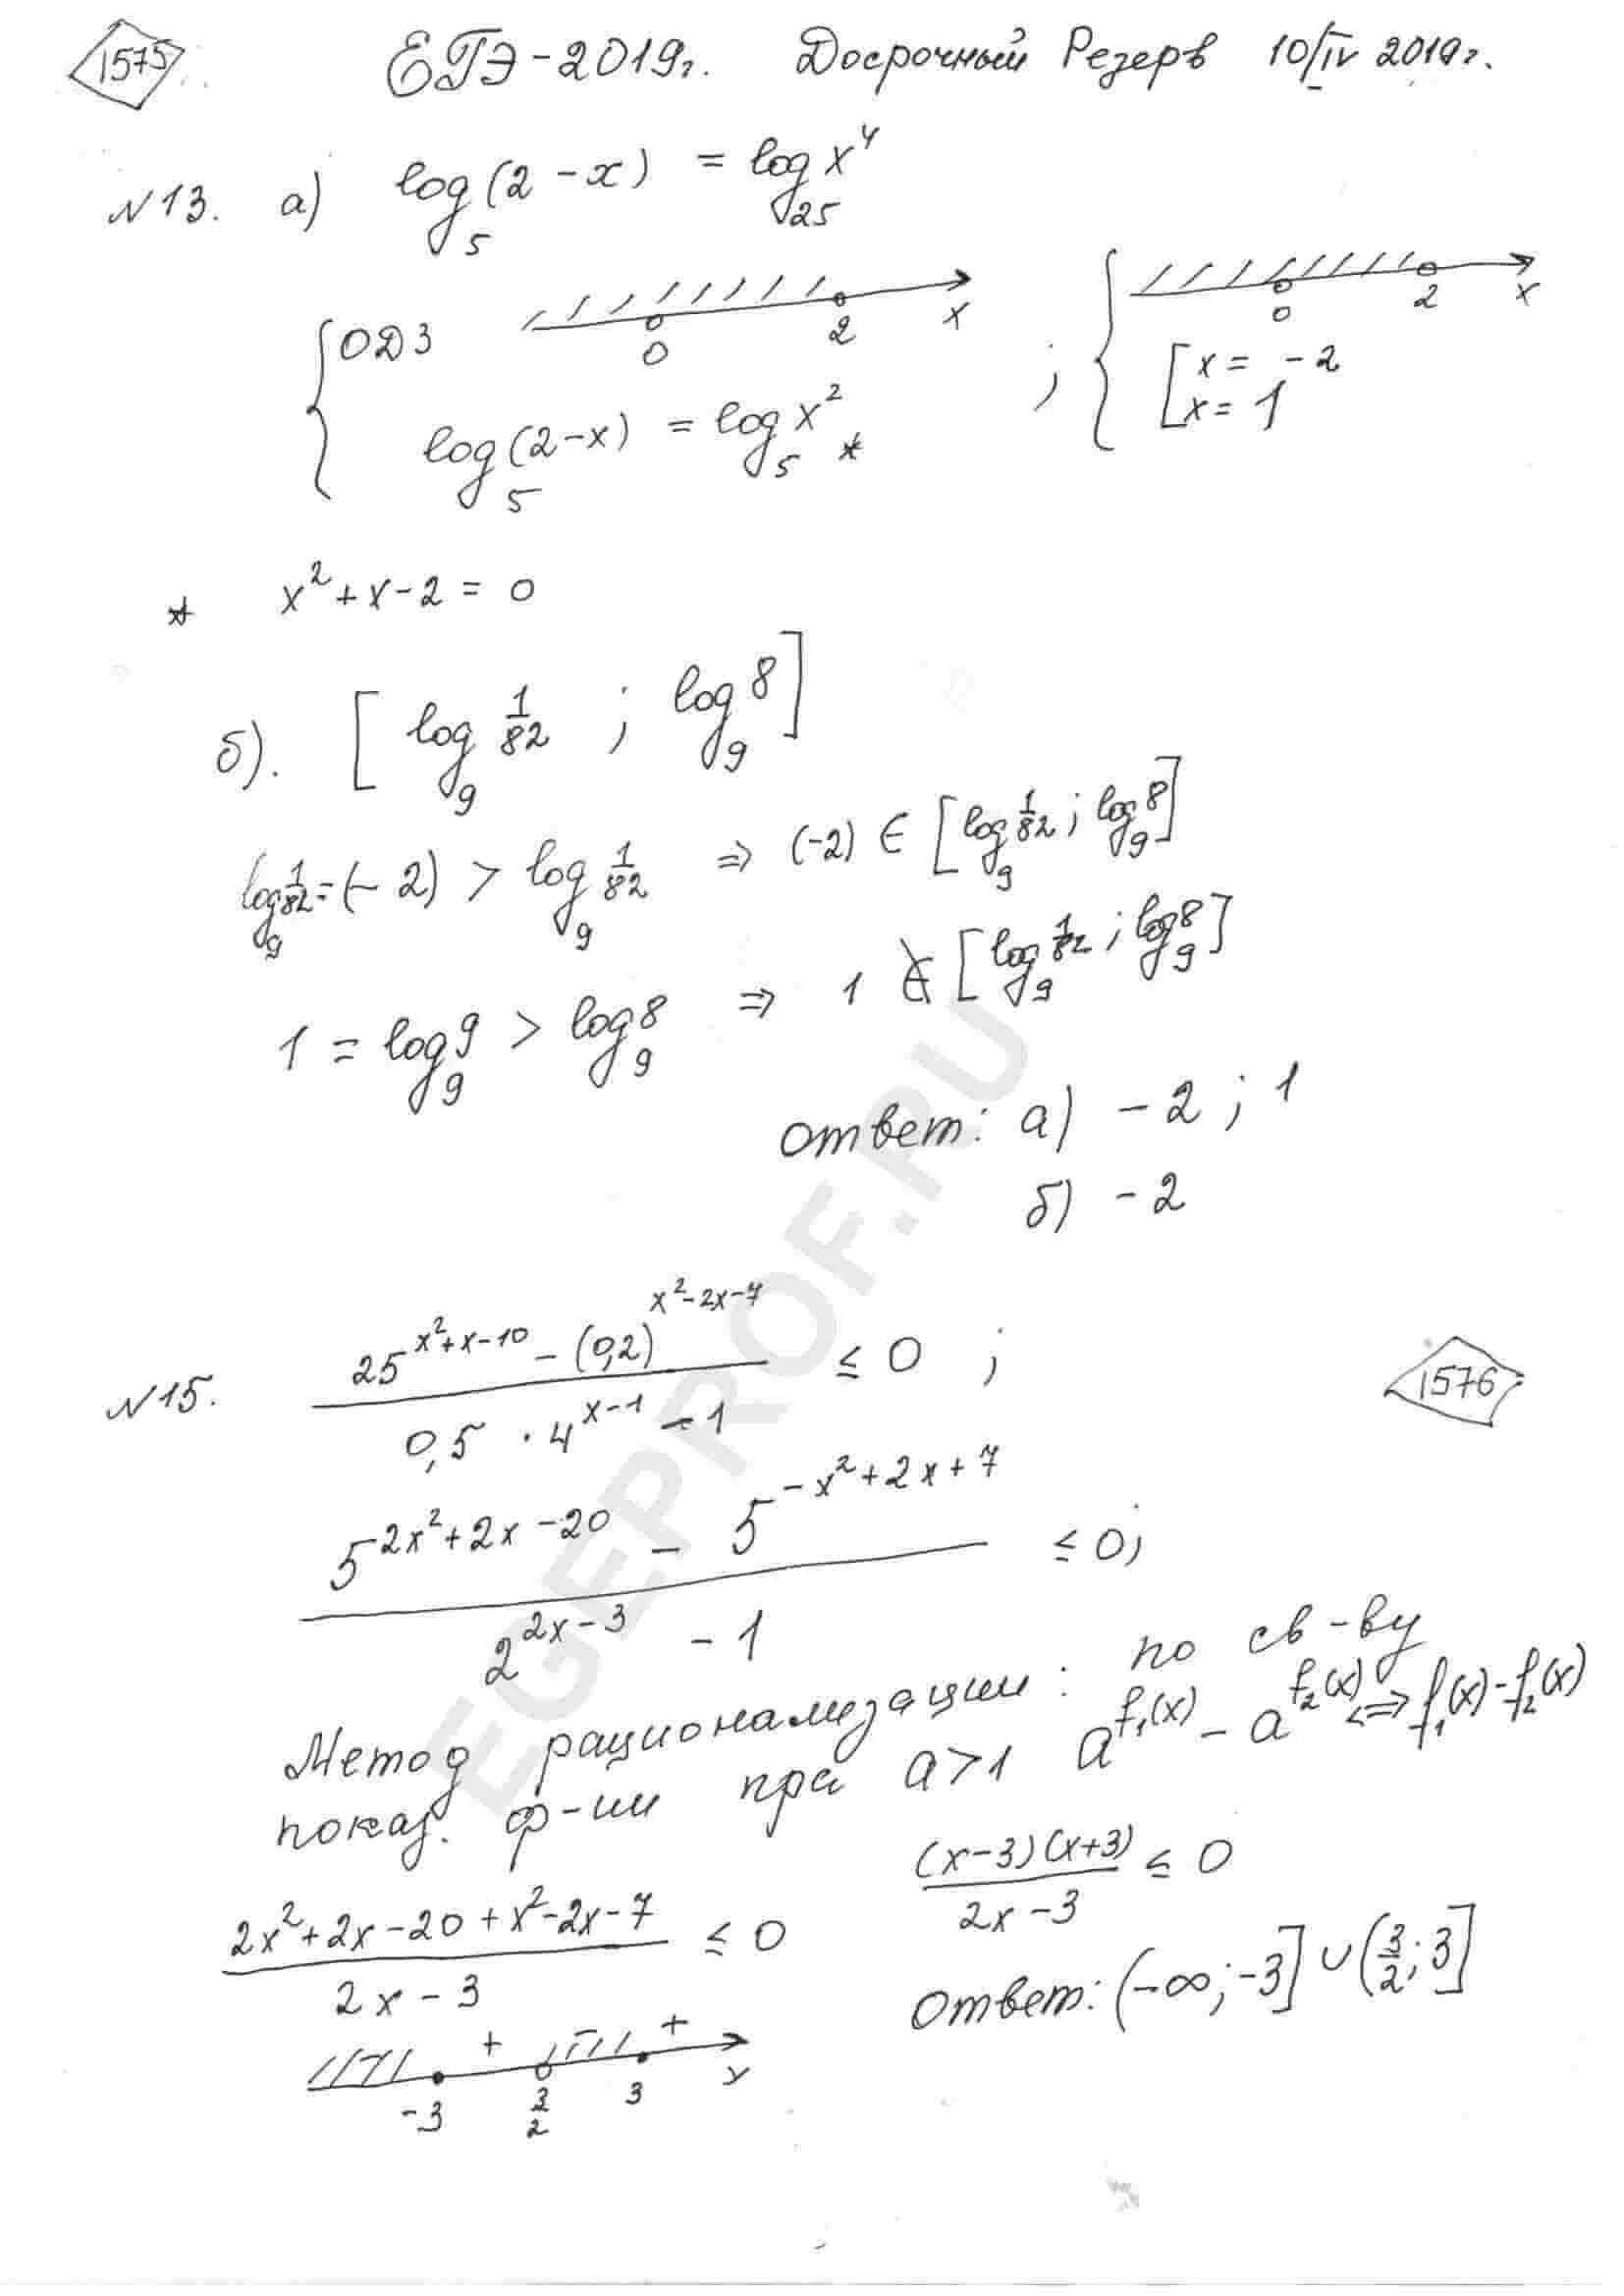 1575 ЕГЭ-2019г. Досрочный Резерв 10/IV 2019г.
N13. а) log_5 (2-x) = log_25 x^4
{ ОДЗ 0 2 x ; { 0 2 x
log_5 (2-x) = log_5 x^2 * [ x = -2
x = 1
* x^2 + x - 2 = 0
б). [ log_9 1/82 ; log_9 8 ]
log_9 1/82 = (-2) > log_9 1/82 ⇒ (-2) ∈ [ log_9 1/82 ; log_9 8 ]
1 = log_9 9 > log_9 8 ⇒ 1 ∉ [ log_9 1/82 ; log_9 8 ]
ответ: а) -2 ; 1
б) -2
N15. (25^(x^2+x-10) - (0,2)^(x^2-2x-7)) / (0,5 · 4^(x-1) - 1) ≤ 0 ; 1576
(5^(2x^2+2x-20) - 5^(-x^2+2x+7)) / (2^(2x-3) - 1) ≤ 0;
Метод рационализации: по св-ву
показ. ф-ии при a>1 a^(f_1(x)) - a^(f_2(x)) <=> f_1(x) - f_2(x)
(2x^2+2x-20+x^2-2x-7) / (2x-3) ≤ 0 ((x-3)(x+3)) / (2x-3) ≤ 0
-3 + 3/2 3 + x
ответ: (-∞; -3] ∪ (3/2; 3]
EGEPROF.RU